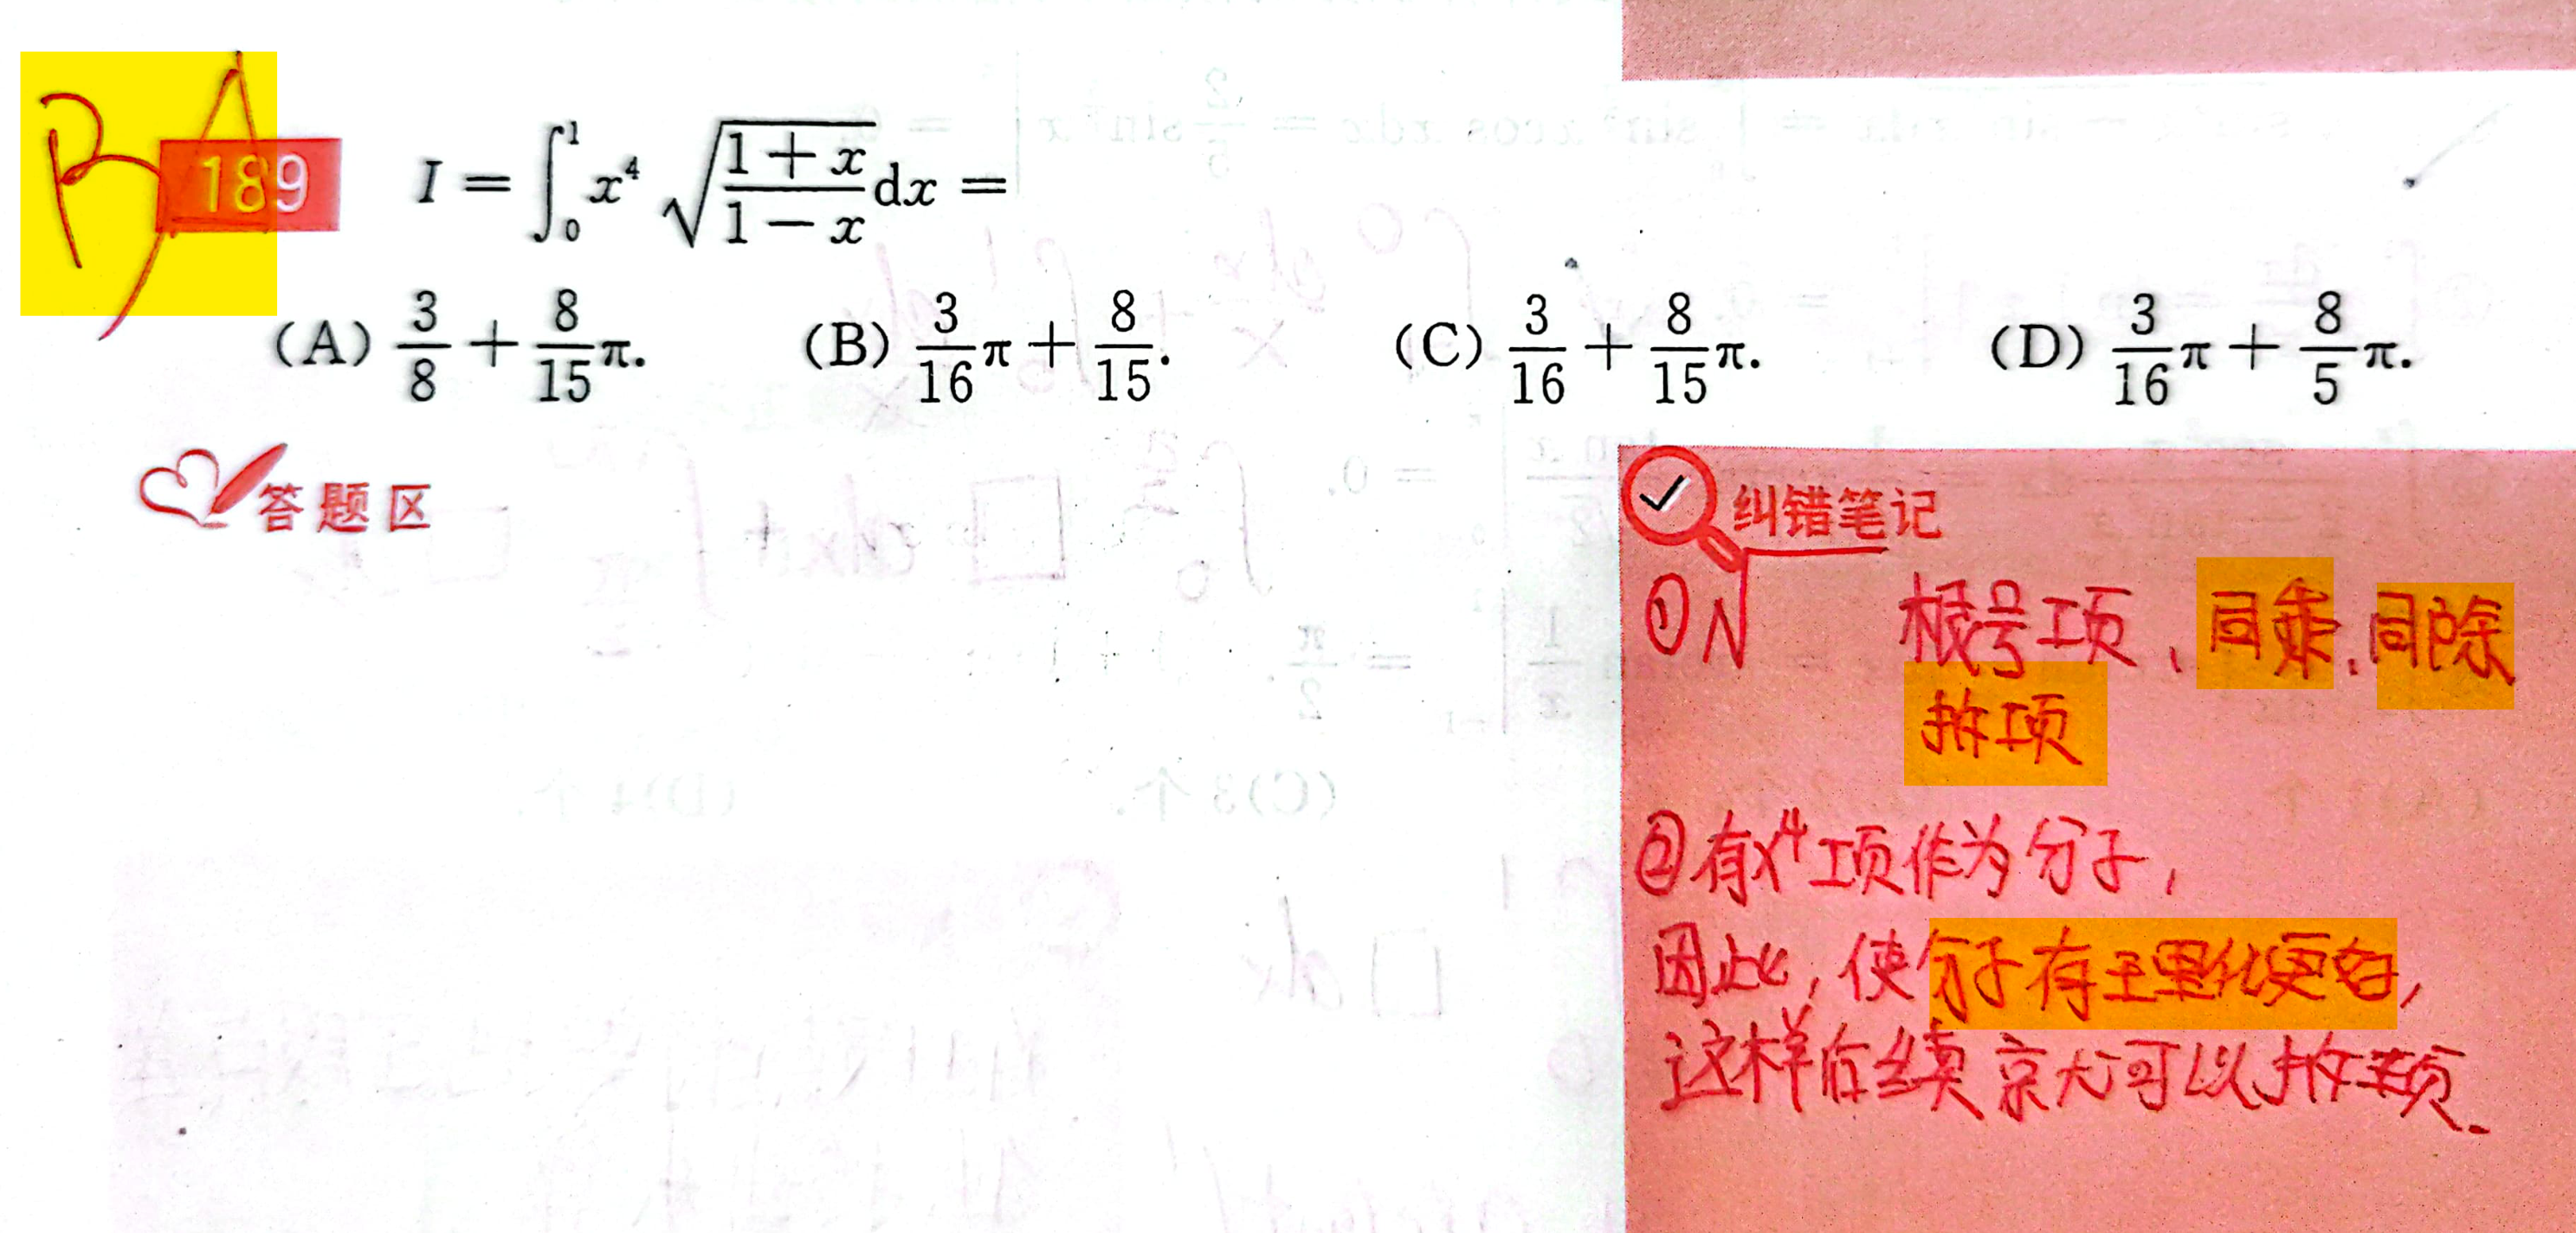 B A
189 I = ∫₀¹ x⁴ √((1+x)/(1−x)) dx =
(A) 3/8 + 8/15 π. (B) 3/16 π + 8/15. (C) 3/16 + 8/15 π. (D) 3/16 π + 8/5 π.
答题区
纠错笔记
① N 根号项、同乘、同除
拆项
② 有x⁴项作为分子,
因此, 使分子有理化更好,
这样后续就可以拆项.